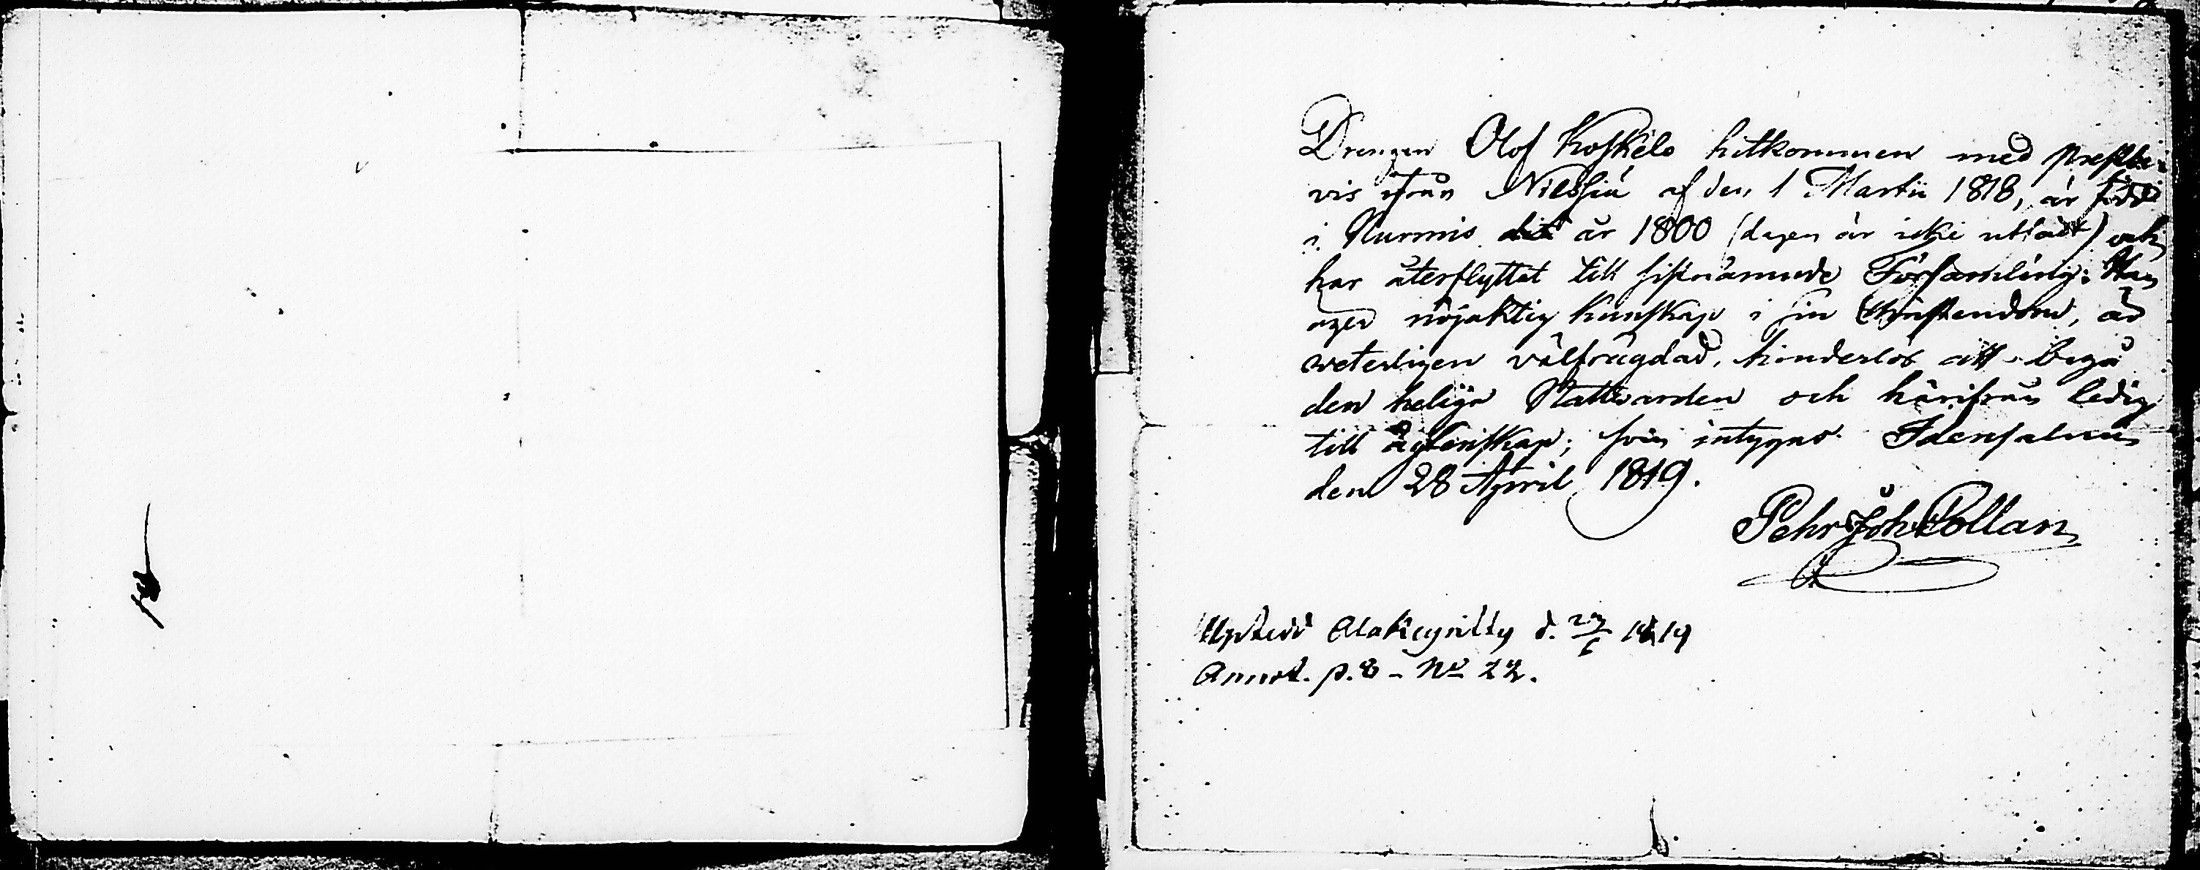 Drengen Olof Koskelo hitkommen med prestbe-
vis ifrån Nilsiä af den 1 Martii 1818, är född
i Nurmis det år 1800 (dagen är icke utsatt) och
har återflyttat till sistnämnde Församling; Han
äger nöjaktig kunskap i sin Christendom, är
veterligen välfrägdad, hinderlös att begå
den heliga Nattvarden och härifrån ledig
till ägtenskap; som intygas. Idensalmi
den 28 April 1819.
Pehr Joh Collan
Uptedt d. 1819
Annot. p. 8 - No 22.